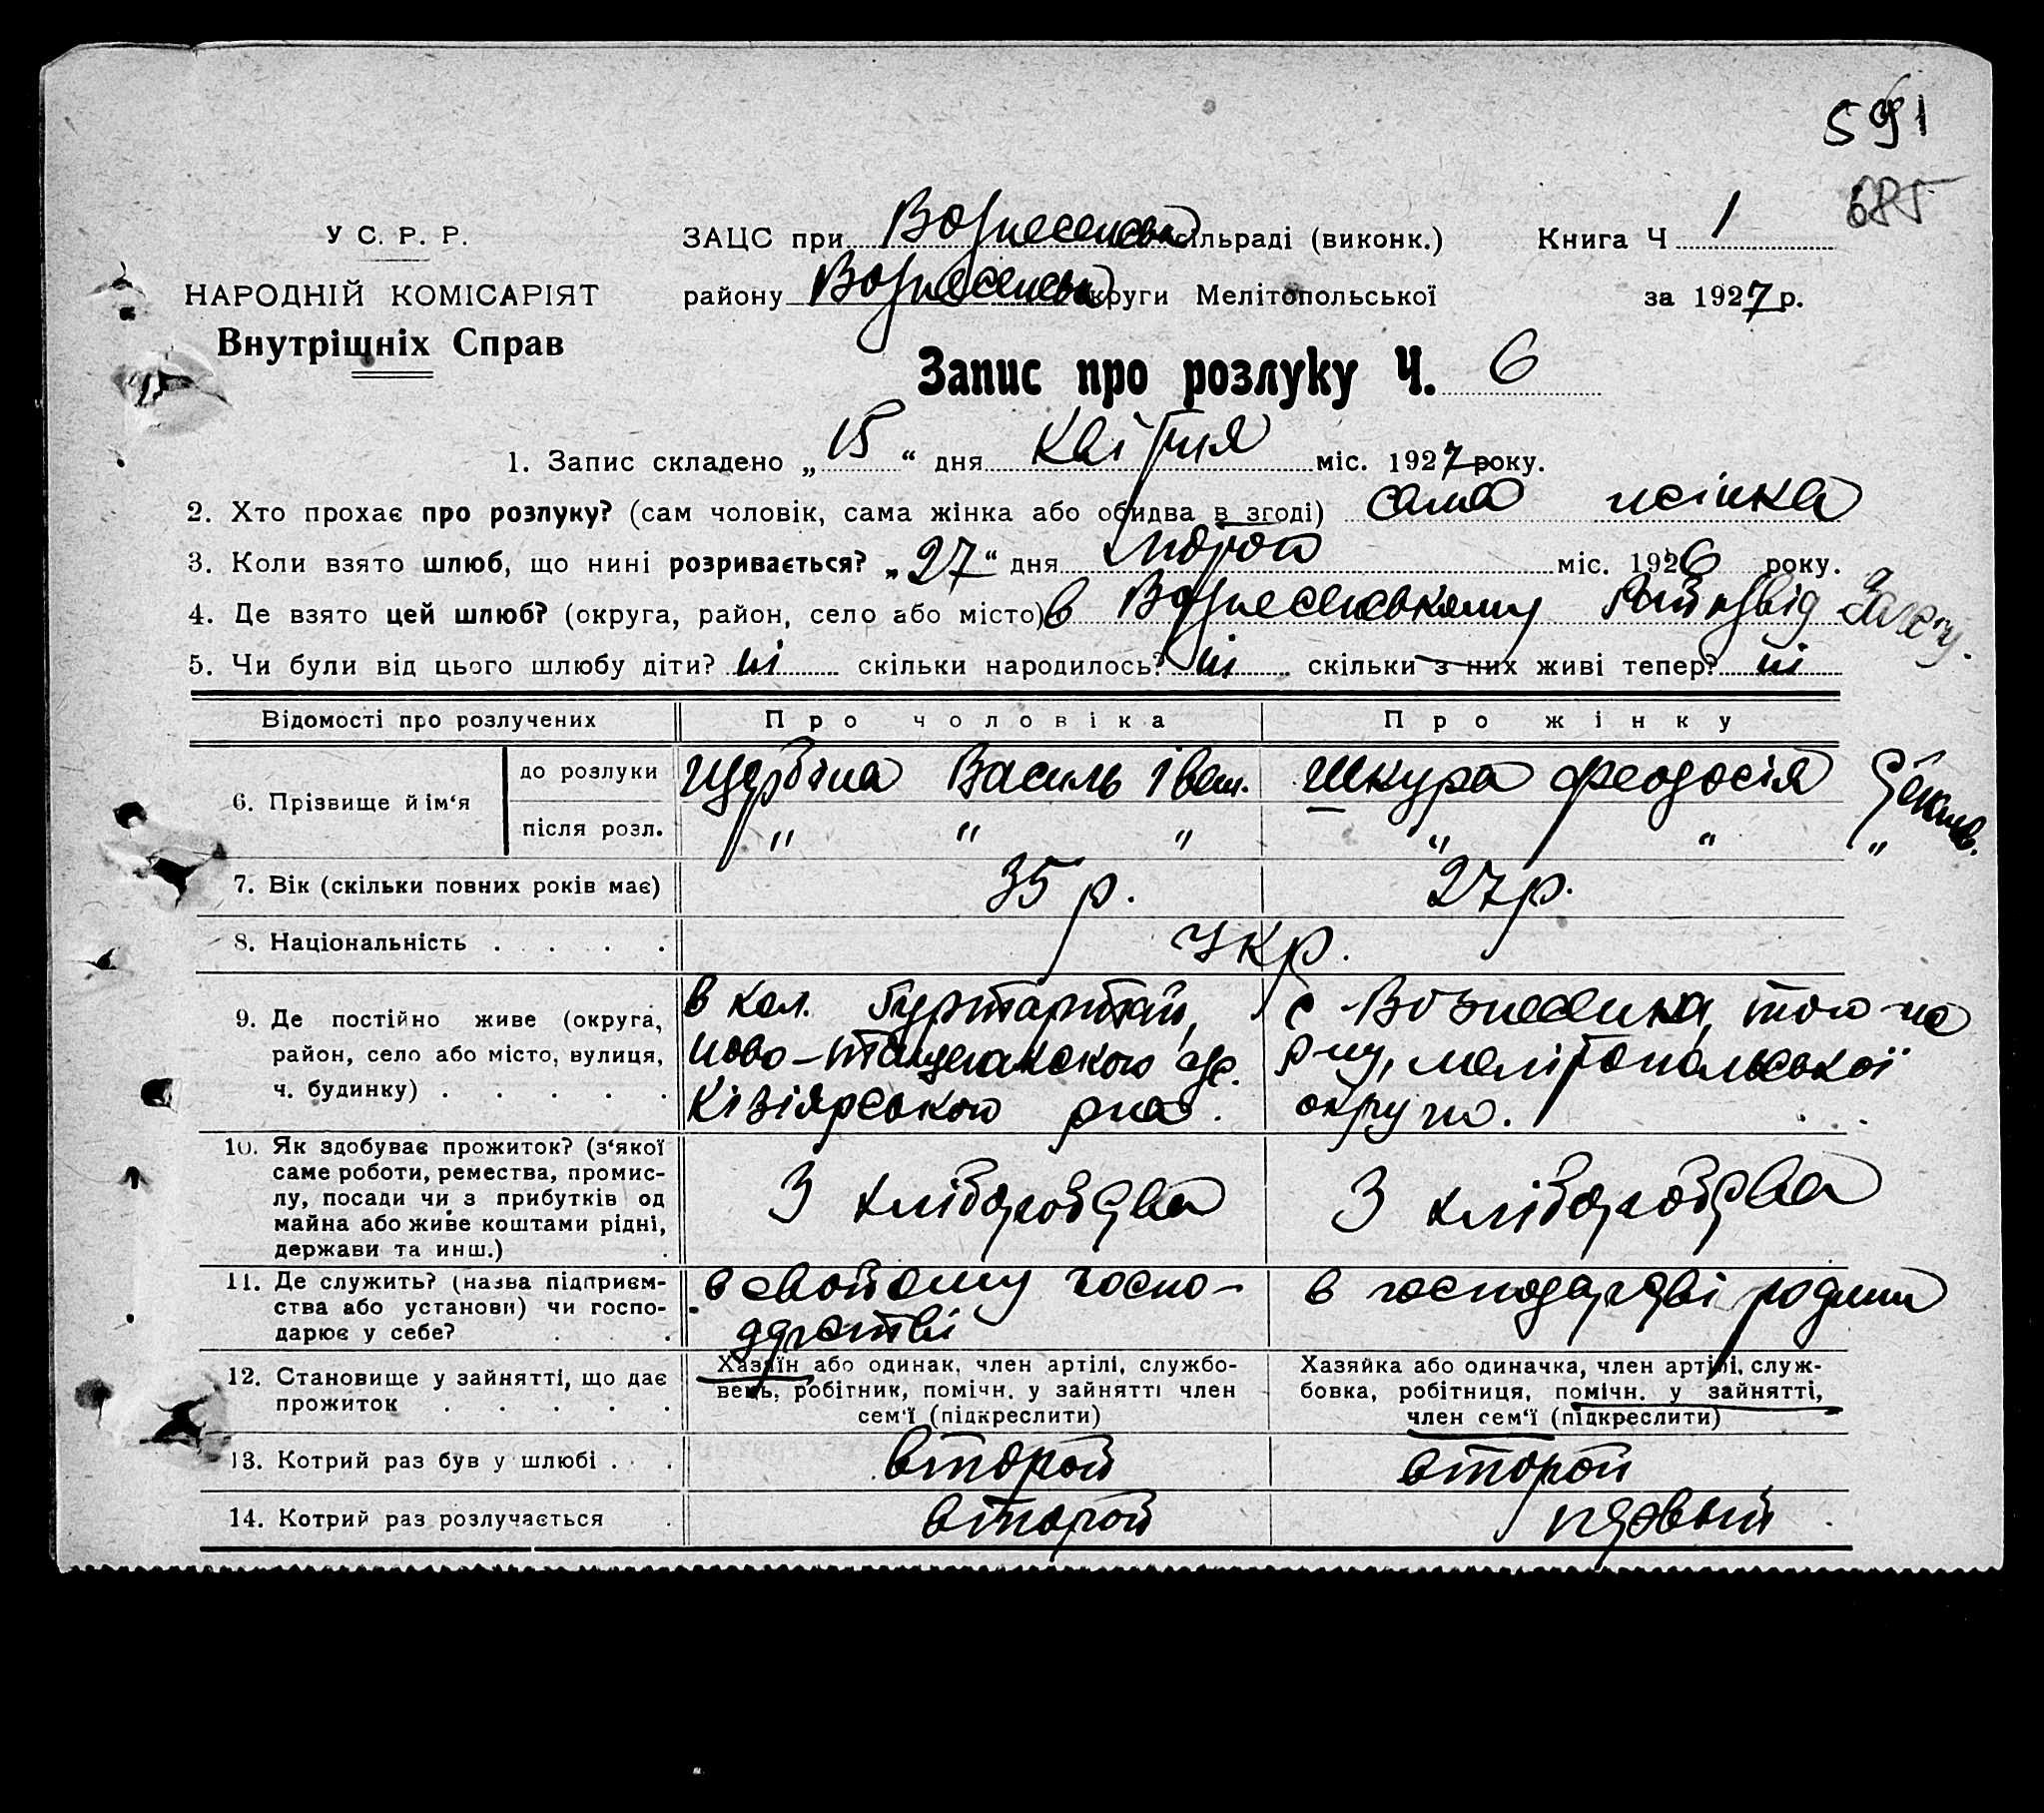 591
685
У С. Р. Р.
НАРОДНІЙ КОМІСАРІЯТ
Внутрішніх Справ
ЗАЦС при Вознесенськ сільраді (виконк.)
району Вознесенськ округи Мелітопольської
Книга Ч 1
за 1927 р.
Запис про розлуку Ч. 6
1. Запис складено „15“ дня Квітня міс. 1927 року.
2. Хто прохає про розлуку? (сам чоловік, сама жінка або обидва в згоді) сама жінка
3. Коли взято шлюб, що нині розривається? „27“ дня міс. 1926 року.
4. Де взято цей шлюб? (округа, район, село або місто) в Вознесенському Загсу.
5. Чи були від цього шлюбу діти? ні скільки народилось? ні скільки з них живі тепер? ні
Відомості про розлучених Про чоловіка Про жінку
6. Прізвище й ім‘я до розлуки Щербина Василь Іван. Шкура Феодосія
після розл. " " " " " "
7. Вік (скільки повних років має) 35 р. 27 р.
8. Національність . . . . укр.
9. Де постійно живе (округа,
район, село або місто, вулиця,
ч. будинку) . . . . .
в кол.
Ново-
Кізіярського р-на.
с Вознесенка, того-же
р-ну, мелітопольської
округи.
10. Як здобуває прожиток? (з‘якої
саме роботи, ремества, промис-
лу, посади чи з прибутків од
майна або живе коштами рідні,
держави та инш.) .
З хліборобства З хліборобства
11. Де служить? (назва підприєм-
ства або установи) чи госпо-
дарює у себе? . . .
в свойому госпо-
дарстві
в господарстві родини
12. Становище у зайнятті, що дає
прожиток . . . . .
Хазяїн або одинак, член артілі, службо-
вець, робітник, помічн. у зайнятті член
сем‘ї (підкреслити)
Хазяйка або одиначка, член артілі, служ-
бовка, робітниця, помічн. у зайнятті,
член сем‘ї (підкреслити)
13. Котрий раз був у шлюбі . . . второй второй
14. Котрий раз розлучається . второй первый